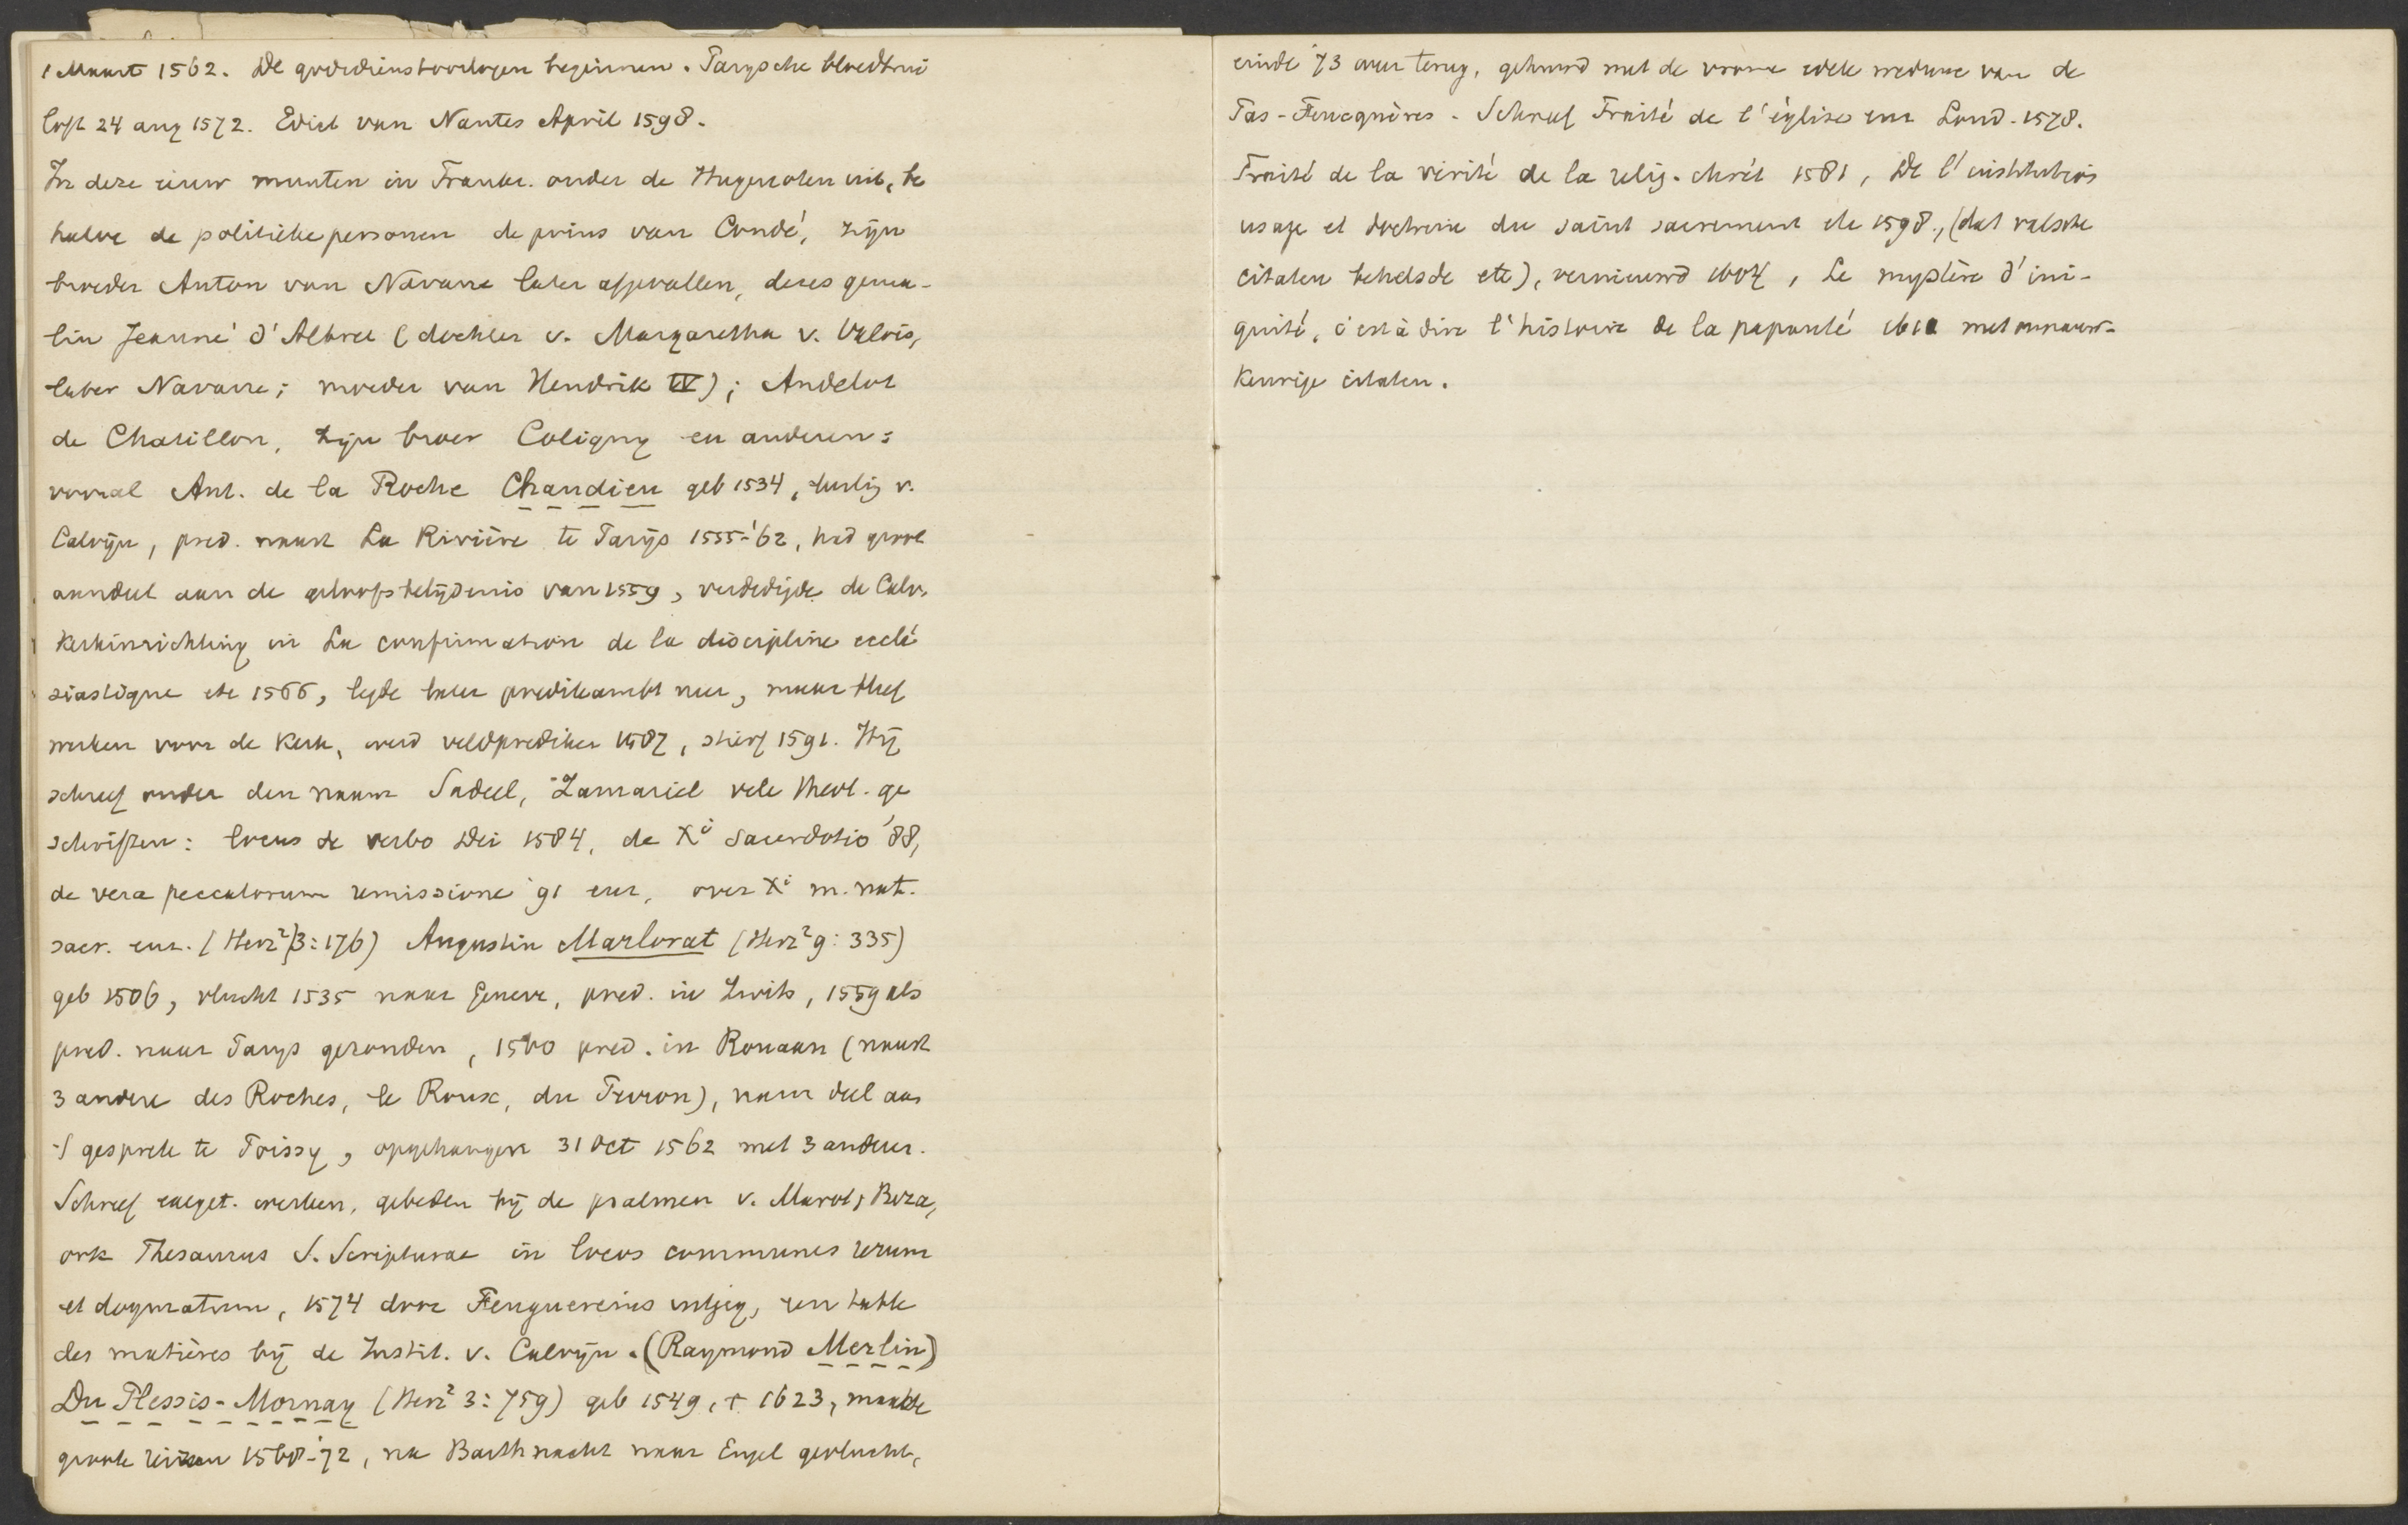 1 Maart 1562. De godsdienstoorlogen beginnen. Parysche bloedbrui
loft 24 aug 1572. Edict van Nantes April 1598.
In deze eeuw munten in Frankr. onder de Hugenoten uit, be
halve de politieke personen de prins van Condé, zijn
broeder Anton van Navarre later afgevallen, deres gema-
lin Jeanne d'Albret (dochter v. Margaretha v. Valois,
later Navarre; moeder van Hendrik IV); Andelot
de Chatillon, zijn broer Coligny en anderen:
vooral Ant. de la Roche Chandieu geb 1534, leerlig v.
Calvijn, pred. naast La Rivière te Parijs 1555-'62, had groot
aandeel aan de geloofsbelijdenis van 1559, verdedigde de Calv.
Kerkinrichting in La confirmation de la discipline ecclé
siastique etc 1566, legde later predikambt neer, maar bleef
werken voor de Kerk, werd veldprediker 1587, stierf 1591. Hij
schreef onder den naam Sadeel, Zamariel vele theol. ge
schriften: locus de verbo Dei 1584, de Xi Sacerdotio '88,
de vera peccatorum remissione '91 enz, over Xi m. nat.
sacr. enz. (Herz² 3:176) Augustin Marlorat (Herz² 9:335)
geb 1506, vlucht 1535 naar Geneve, pred. in Zwits, 1559 als
pred. naar Parys gezonden, 1560 pred. in Rouaan (naast
3 andere des Roches, le Roux, du Perron), nam deel aan
't gesprek te Poissy, opgehangen 31 Oct 1562 met 3 anderen.
Schreef exeget. werken, gebeden bij de psalmen v. Marot, Beza,
ook Thesaurus S. Scripturae in locos communes rerum
et dogmatum, 1574 door Feuguereius uitgeg, een table
des matières bij de Instit. v. Calvijn. (Raymond Merlin)
Du Plessis-Mornay (Herz² 3:759) geb 1549, † 1623, maakte
groote reizen 1568-'72, na Barth nacht naar Engel gevlucht,
einde '73 weer terug, gehuwd met de vrome edele weduwe van de
Pas-Feuquières. Schreef Traité de l'église enz Lond. 1578.
Traité de la vérité de la relig. chrét 1581, De l'institution
usage et doctrine du saint sacrement etc 1598, (dat valsche
citaten behelsde etc), vernieuwd 1604, Le mystère d'ini-
quité, c'est à dire l'histoire de la papauté 1611 met onnauw-
keurige citaten.